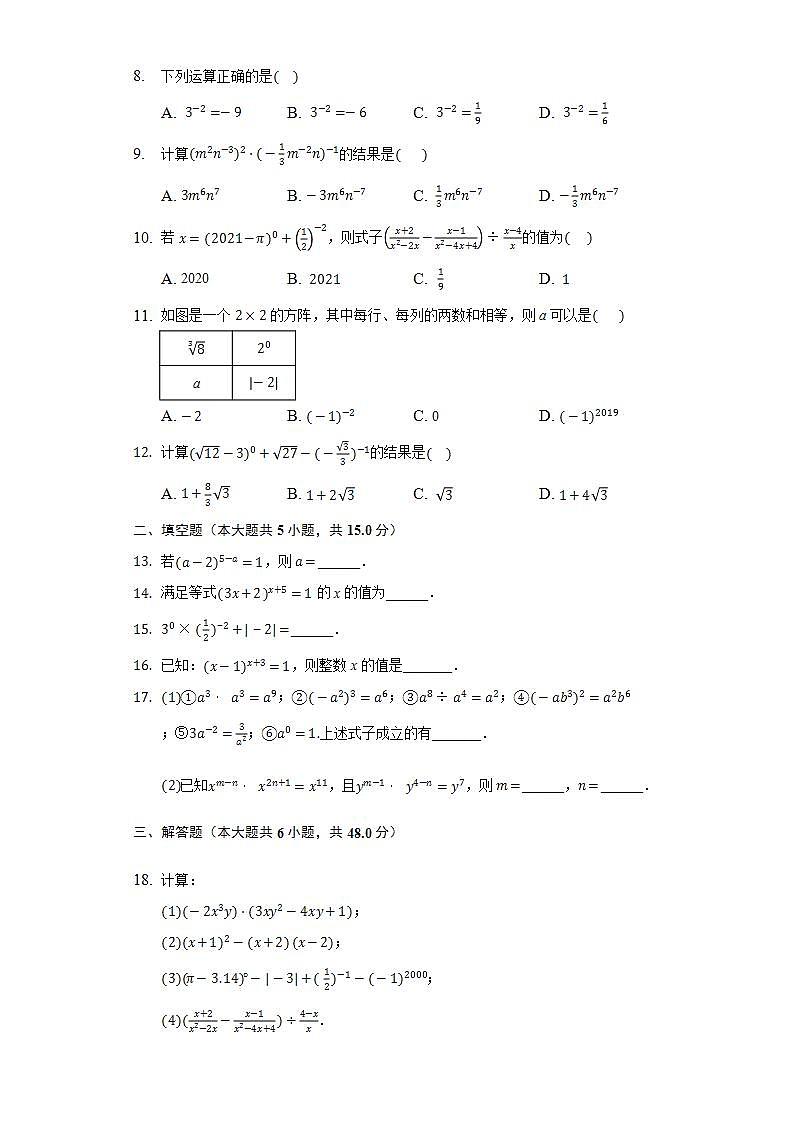 8. 下列运算正确的是( )
A. 3⁻² =− 9 B. 3⁻² =− 6 C. 3⁻² = 1/9 D. 3⁻² = 1/6
9. 计算(m²n⁻³)² · (− 1/3 m⁻²n)⁻¹的结果是( )
A. 3m⁶n⁷ B. − 3m⁶n⁻⁷ C. 1/3 m⁶n⁻⁷ D. − 1/3 m⁶n⁻⁷
10. 若 x = (2021−π)⁰ + (1/2)⁻²，则式子((x+2)/(x²−2x) − (x−1)/(x²−4x+4)) ÷ (x−4)/x的值为( )
A. 2020 B. 2021 C. 1/9 D. 1
11. 如图是一个 2 × 2 的方阵，其中每行、每列的两数和相等，则 a 可以是( )
∛8 2⁰
a |− 2|
A. − 2 B. (− 1)⁻² C. 0 D. (− 1)²⁰¹⁹
12. 计算(√12 − 3)⁰ + √27 − (− √3/3)⁻¹的结果是( )
A. 1 + 8/3 √3 B. 1 + 2√3 C. √3 D. 1 + 4√3
二、填空题（本大题共 5 小题，共 15.0 分）
13. 若(a − 2)⁵⁻ᵃ = 1，则 a = ______.
14. 满足等式(3x + 2)ˣ⁺⁵ = 1 的 x 的值为______.
15. 3⁰ × (1/2)⁻² + |﹣2| = ______.
16. 已知：(x − 1)ˣ⁺³ = 1，则整数 x 的值是_______.
17. (1)①a³ · a³ = a⁹；②(− a²)³ = a⁶；③a⁸ ÷ a⁴ = a²；④(− ab³)² = a²b⁶
；⑤3a⁻² = 3/a²；⑥a⁰ = 1.上述式子成立的有_______.
(2)已知xᵐ⁻ⁿ · x²ⁿ⁺¹ = x¹¹，且yᵐ⁻¹ · y⁴⁻ⁿ = y⁷，则 m = ______，n = ______.
三、解答题（本大题共 6 小题，共 48.0 分）
18. 计算：
(1)(− 2x³y) · (3xy² − 4xy + 1)；
(2)(x + 1)² − (x + 2) (x − 2)；
(3)(π − 3.14)° − | − 3| + ( 1/2)⁻¹ − (− 1)²⁰⁰⁰；
(4)((x+2)/(x²−2x) − (x−1)/(x²−4x+4)) ÷ (4−x)/x.